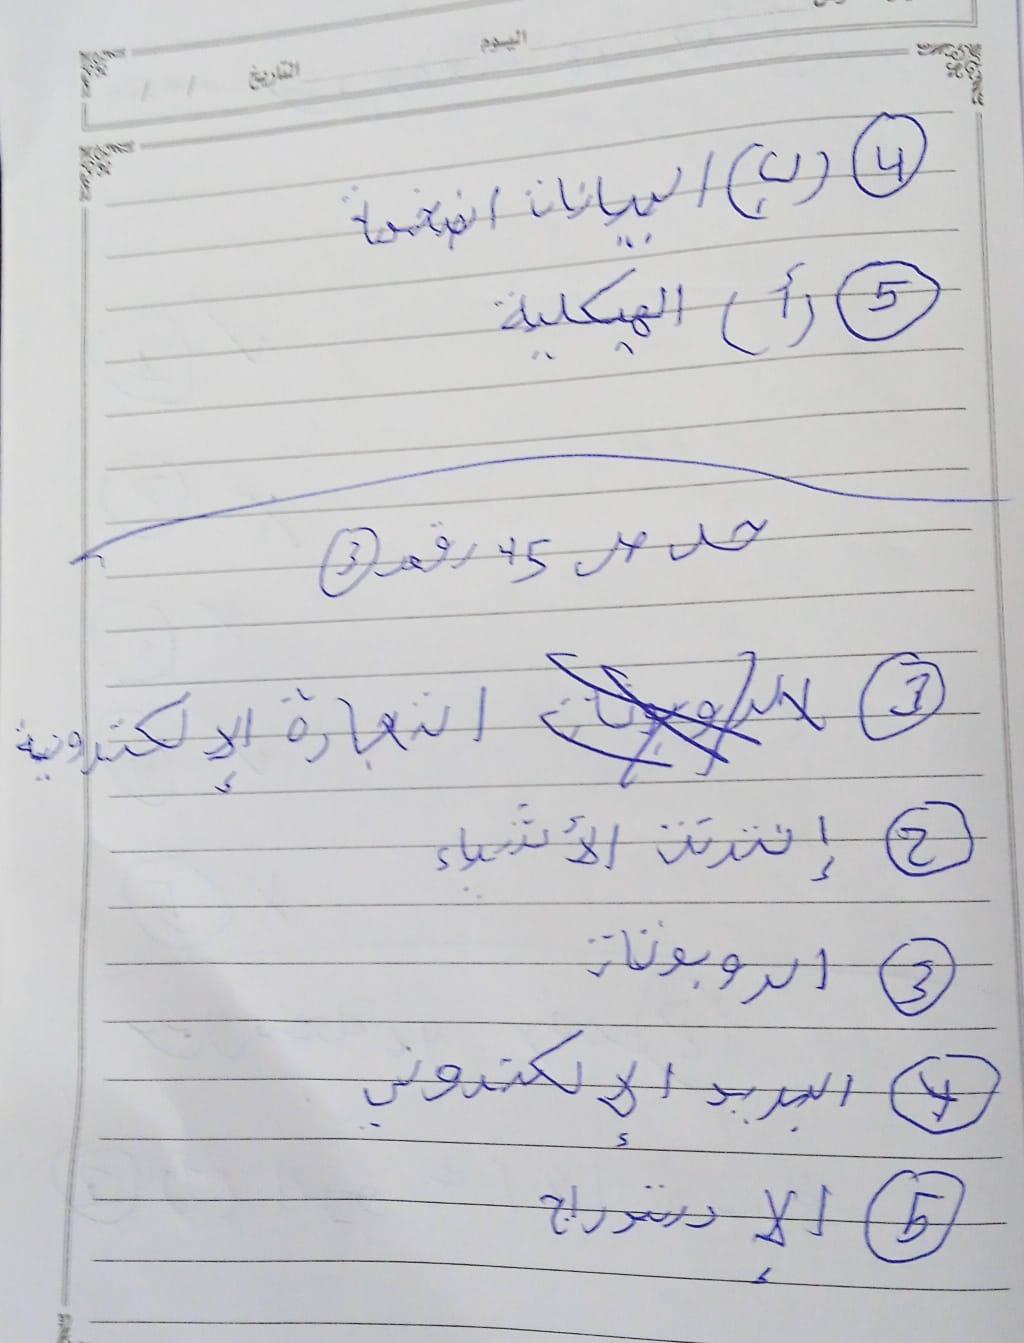 اليوم
التاريخ / /
4 (ب) البيانات الضخمة
5 (أ) الهيكلية
حل ص 45 رقم 3
1 التجارة الإلكترونية
2 إنترنت الأشياء
3 الروبوتات
4 البريد الإلكتروني
5 الإ